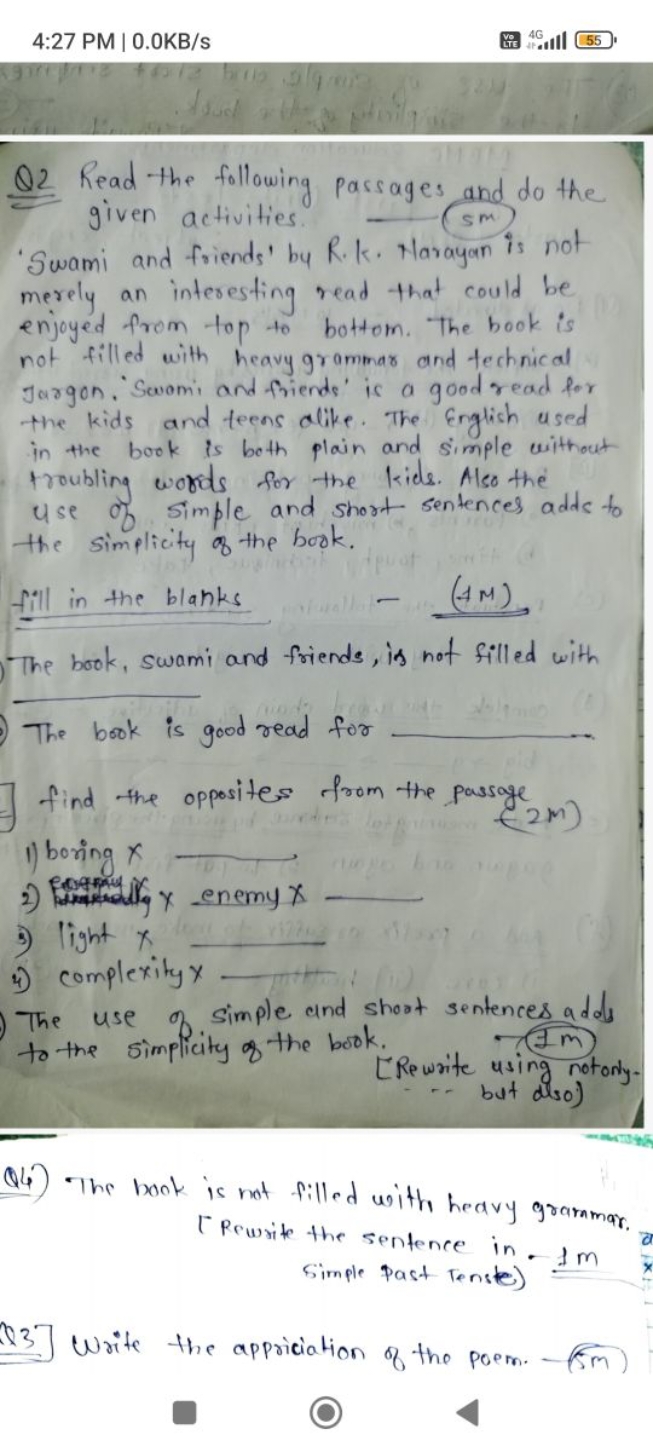 4:27 PM | 0.0KB/s
Vo LTE 4G 55
Q2 Read the following passages and do the
given activities. — (5m)
'Swami and friends' by R.k. Narayan is not
merely an interesting read that could be
enjoyed from top to bottom. The book is
not filled with heavy grammar and technical
Jargon. 'Swami and friends' is a good read for
the kids and teens alike. The English used
in the book is both plain and simple without
troubling words for the kids. Also the
use of simple and short sentences adds to
the simplicity of the book.
fill in the blanks - (1M)
The book, swami and friends, is not filled with
The book is good read for
find the opposites from the passage
(2M)
1) boring x
2) x enemy x
3) light x
4) complexity x
The use of simple and short sentences adds
to the simplicity of the book. - (1m)
[Rewrite using notonly-
- - - but also]
Q4) The book is not filled with heavy grammar.
[Rewrite the sentence in - 1m
Simple Past Tenste)
Q3] Write the appriciation of the poem. - (5m)